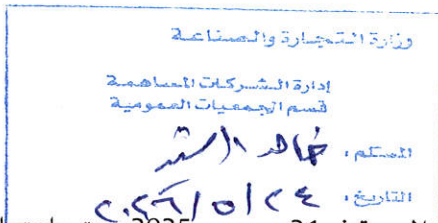 وزارة التجارة والصناعة
إدارة الشركات المساهمة
قسم الجمعيات العمومية
المستلم: خالد
التاريخ: ٢٠٢٦/٥/٢٤
31
2025